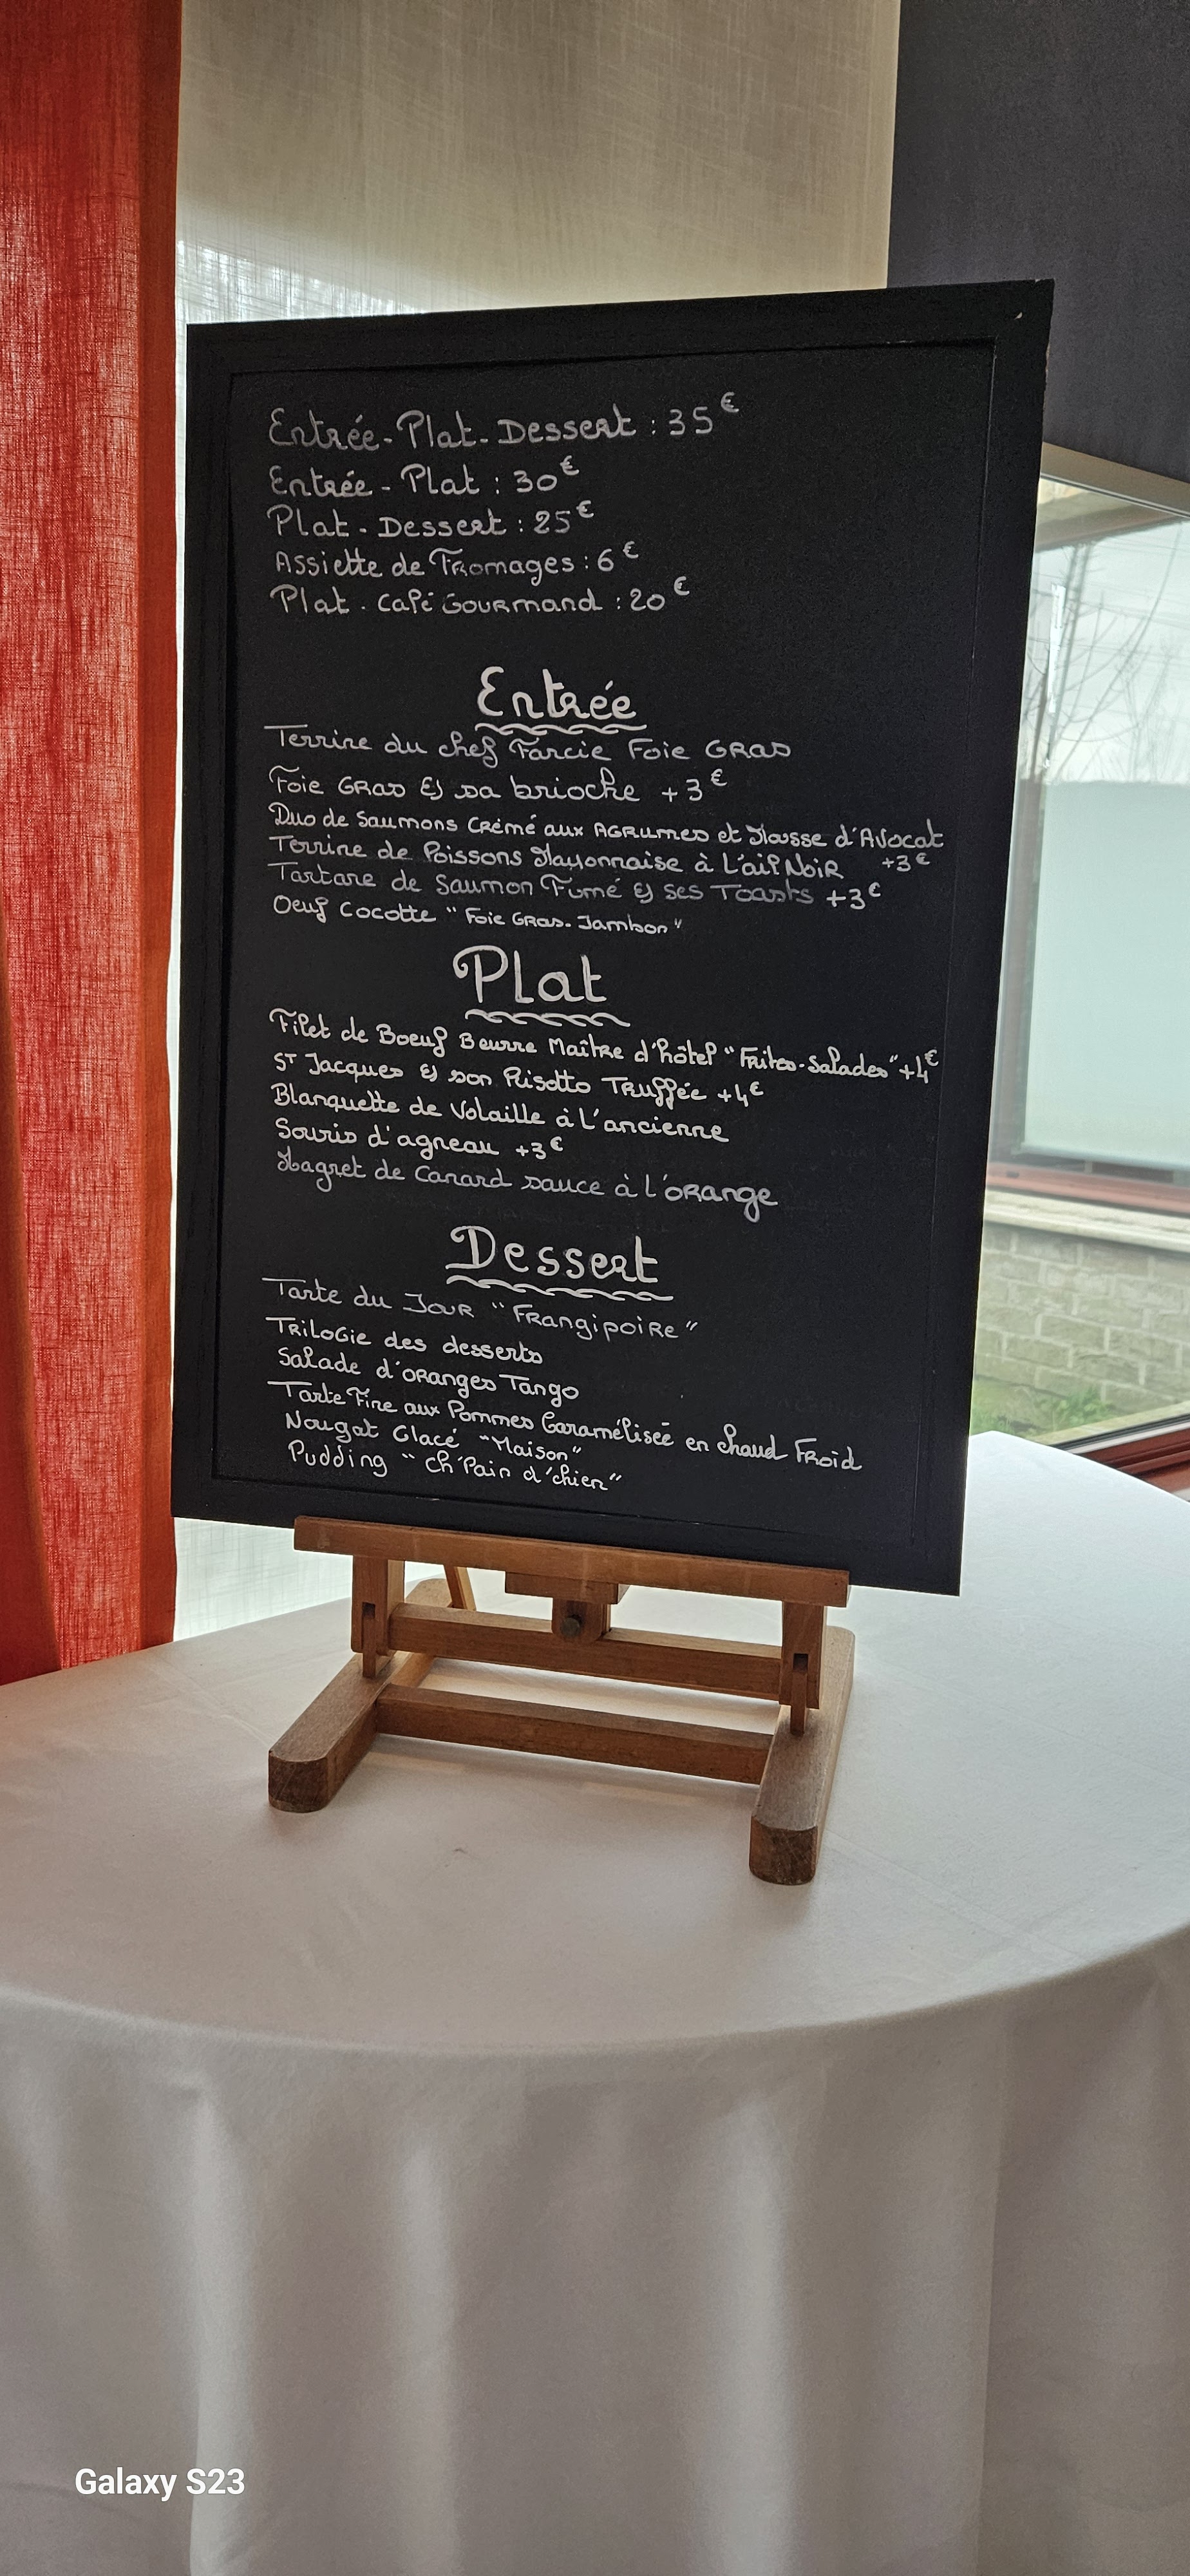 Entrée-Plat-Dessert : 35€
Entrée - Plat : 30€
Plat - Dessert : 25€
Assiette de Fromages : 6€
Plat - Café Gourmand : 20€
Entrée
Terrine du chef Farcie Foie Gras
Foie Gras & sa brioche +3€
Duo de Saumons Crémé aux Agrumes et Mousse d'Avocat
+3€
Terrine de Poissons Mayonnaise à L'ail Noir
Tartare de Saumon Fumé & ses Toasts +3€
Oeuf Cocotte "Foie Gras-Jambon"
Plat
Filet de Boeuf Beurre Maître d'hôtel "Frites-Salades" +4€
ST Jacques & son Risotto Truffée +4€
Blanquette de Volaille à L'ancienne
Souris d'agneau +3€
Magret de Canard sauce à l'orange
Dessert
Tarte du Jour "Frangipoire"
Trilogie des desserts
Salade d'oranges Tango
Tarte Fine aux Pommes Caramélisée en chaud Froid
Nougat Glacé "Maison"
Pudding "Ch'Pain d'chien"
Galaxy S23